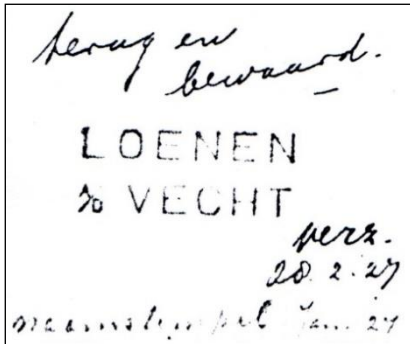 terug en
bewaard.
LOENEN
a/o VECHT
verz.
28.2.27
naamstempel Jan. 27